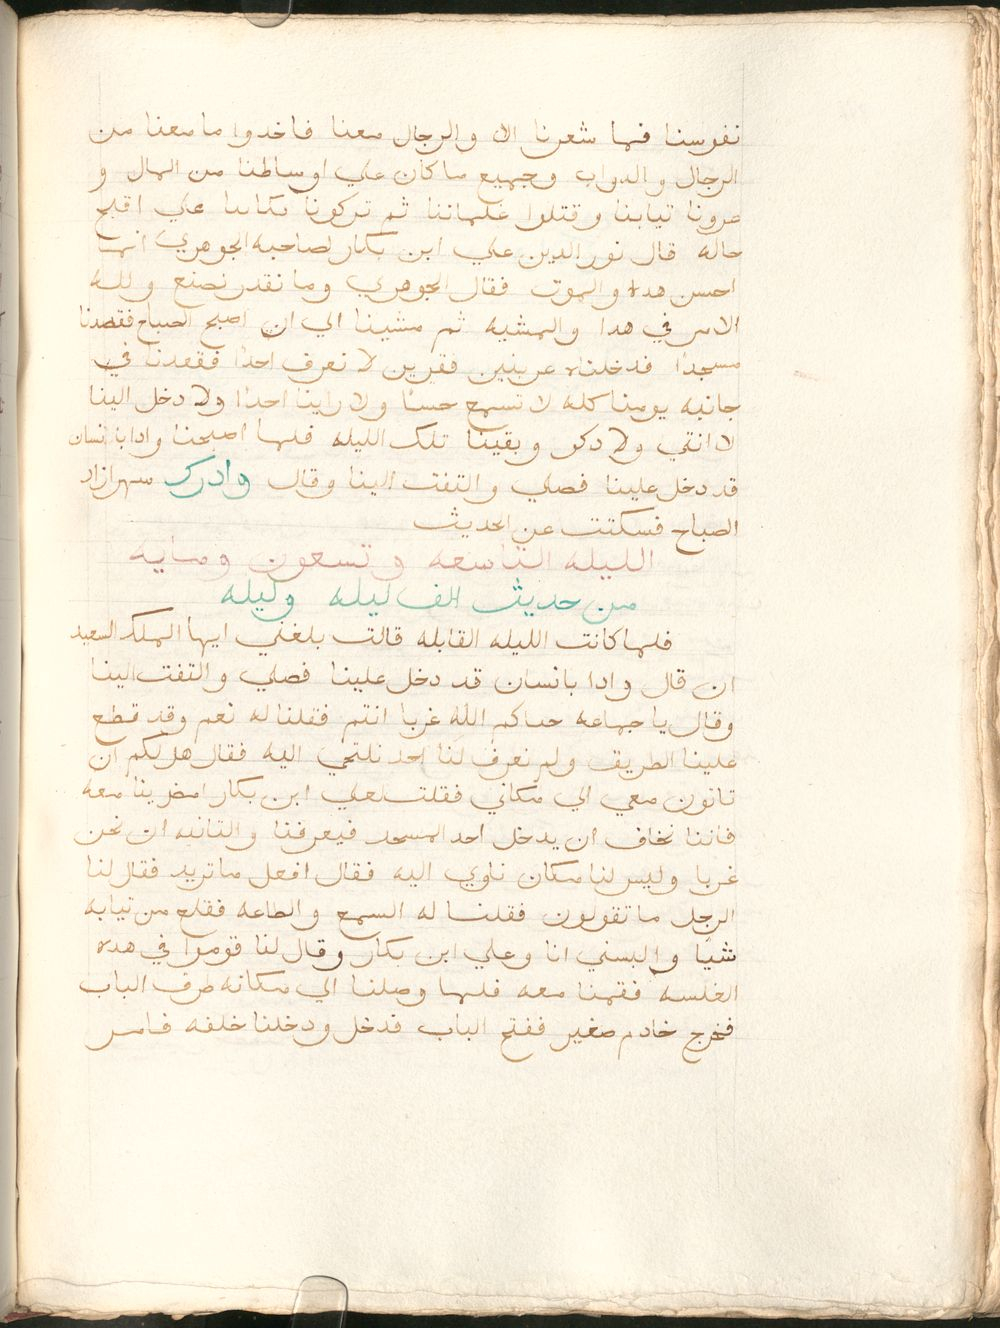 نفوسنا فما شعرنا الا والرجال معنا فاخدوا ما معنا من
الرجال والدواب وجميع ما كان علي اوساطنا من المال و
عرونا تيابنا وقتلوا غلماننا ثم تركونا مكاننا علي اقبح
حاله قال نور الدين علي ابن بكار لصاحبه الجوهري ايما
احسن هده والموت فقال الجوهري وما نقدر نصنع ولله
الامر في هدا والمشيه ثم مشينا الي ان اصبح الصباح فقصدنا
مسجدًا فدخلناه عريانين فقرين لا نعرف احدًا فقعدنا في
جانبه يومنا كله لا نسمع حسًا ولا راينا احدًا ولا دخل الينا
لا انتي ولا دكر وبقينا تلك الليله فلما اصبحنا وادا بانسان
قد دخل علينا فصلي والتفت الينا وقال وادرك سهرازاد
الصباح فسكتت عن الحديث
الليله التاسعه وتسعون ومايه
من حديث الف ليله وليله
فلما كانت الليله القابله قالت بلغني ايها الملك السعيد
ان قال وادا بانسان قد دخل علينا فصلي والتفت الينا
وقال يا جماعه حياكم الله غربا انتم فقلنا له نعم وقد قطع
علينا الطريق ولم نعرف لنا احد نلتجي اليه فقال هل لكم ان
تاتون معي الي مكاني فقلت لعلي ابن بكار امض بنا معه
فاننا نخاف ان يدخل احد المسجد فيعرفنا والتانيه ان نحن
غربا وليس لنا مكان ناوي اليه فقال افعل ما تريد فقال لنا
الرجل ما تقولون فقلنا له السمع والطاعه فقلع من تيابه
شيًا والبسني انا وعلي ابن بكار وقال لنا قوموا في هده
الغلسه فقمنا معه فلما وصلنا الي مكانه طرق الباب
فخرج خادم صغير ففتح الباب فدخل ودخلنا خلفه فامر